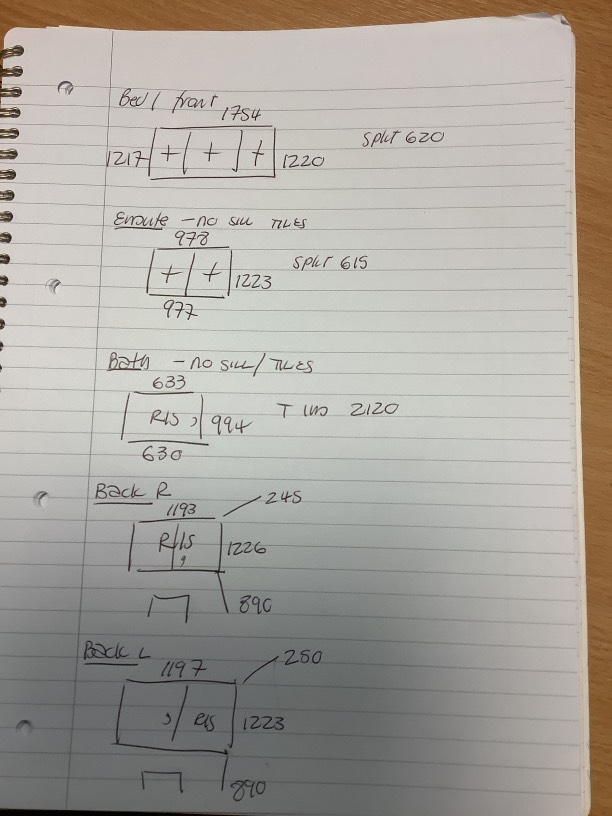 Bed 1 front
1754
1217 1220 split 620
Ensuite - no sill TILES
978
1223 split 615
977
Bath - no sill/TILES
633
RIS 994 2120
630
Back R
1193 245
RIS 1226
890
Back L
1197 250
RIS 1223
890